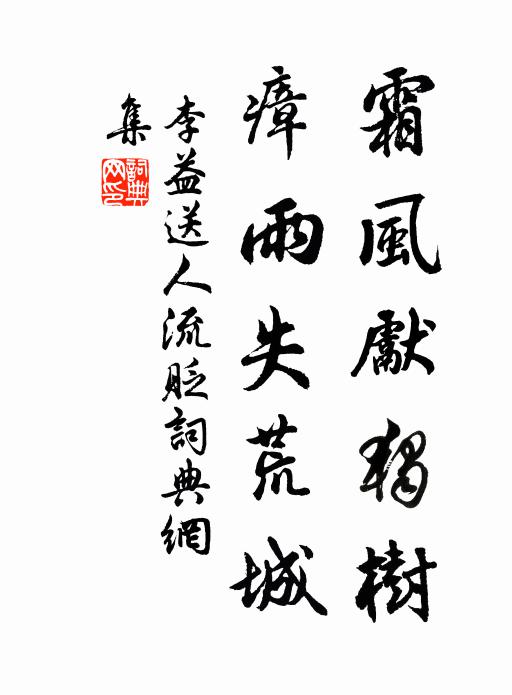 霜風獻獨樹
瘴雨失荒城
李益送人流貶詞典網
集
詞典网印